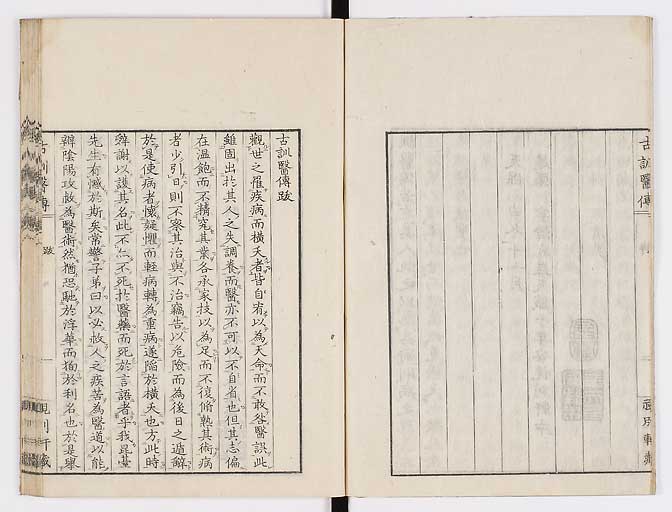 古訓醫傳
古訓醫傳跋
觀世之罹疾病而橫夭者皆自宥以為天命而不敢咎醫誤此
雖固出於其人之失調養而醫亦不可以不自省也但其志偏
在溫飽而不精究其業各承家技以為足而不復脩熟其術病
者少引日則不察其治與不治竊告以危險而為後日之遁辭
於是使病者懷疑懼而輕病轉為重病遂陷於橫夭也方此時
辭謝以護其名此不仁不死於醫藥而死於言語者乎我是菫
先生有慨於斯矣常警子弟曰以必救人之疾苦為醫道以能
辨陰陽攻救為醫術然猶恐馳於浮華而徇於利名也於是舉
古訓醫傳
跋